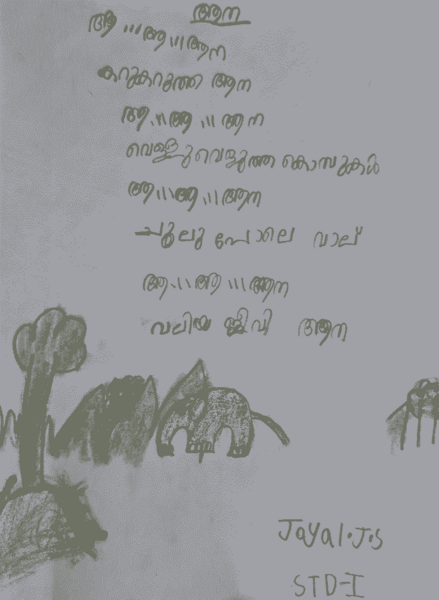 ആന
ആ...ആ...ആന
കറുകറുത്ത ആന
ആ...ആ...ആന
വെളുവെളുത്ത കൊമ്പുകൾ
ആ...ആ...ആന
ചൂലു പോലെ വാല്
ആ...ആ...ആന
വലിയ ജീവി ആന
Jayal.J.S
STD-I